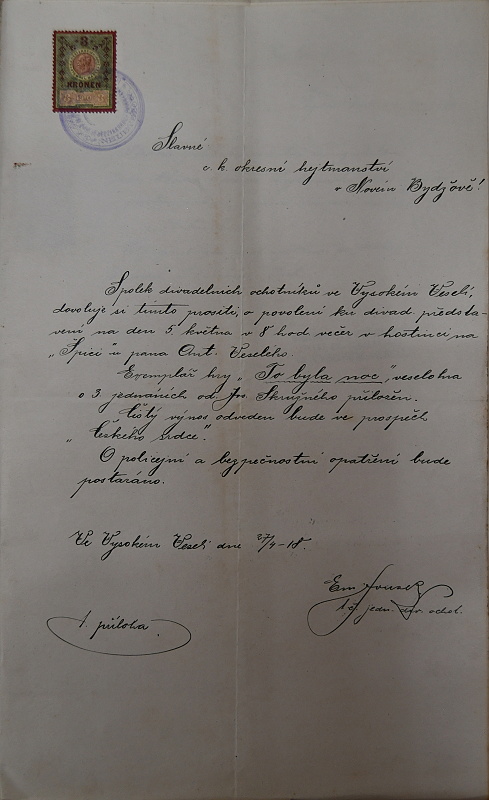 3
KRONEN
Slavné
c. k. okresní hejtmanství
v Novém Bydžově!
Spolek divadelních ochotníků ve Vysokém Veselí,
dovoluje si tímto prositi, o povolení ku divad. předsta-
vení na den 5. května v 8 hod. večer v hostinci na
„Špici" u pana Ant. Veselého.
Exemplář hry „To byla noc", veselohra
o 3. jednáních od Jos. Skružného přiložen.
Čistý výnos odveden bude ve prospěch
„Českého srdce".
O policejní a bezpečnostní opatření bude
postaráno.
Ve Vysokém Veselí dne 27/4-18.
Em.
t. č. jedn. ochot.
1. příloha.